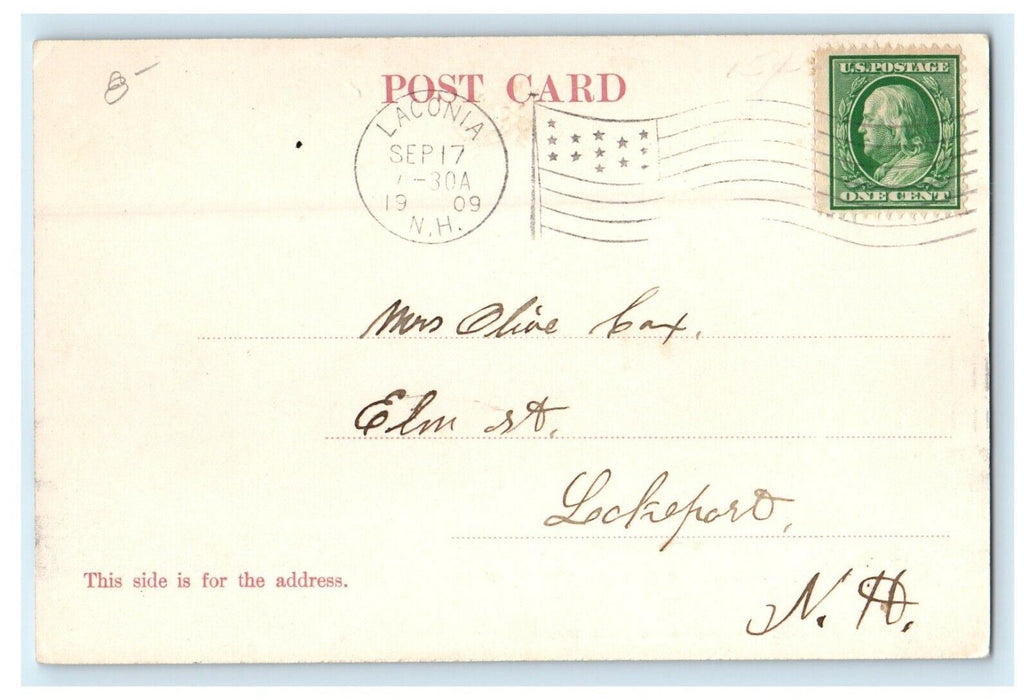 8-
POST CARD
U.S. POSTAGE
LACONIA
SEP 17
-30A
19 09
N.H.
ONE CENT
Mrs Olive Cox.
Elm St.
Lakeport,
N. H.
This side is for the address.